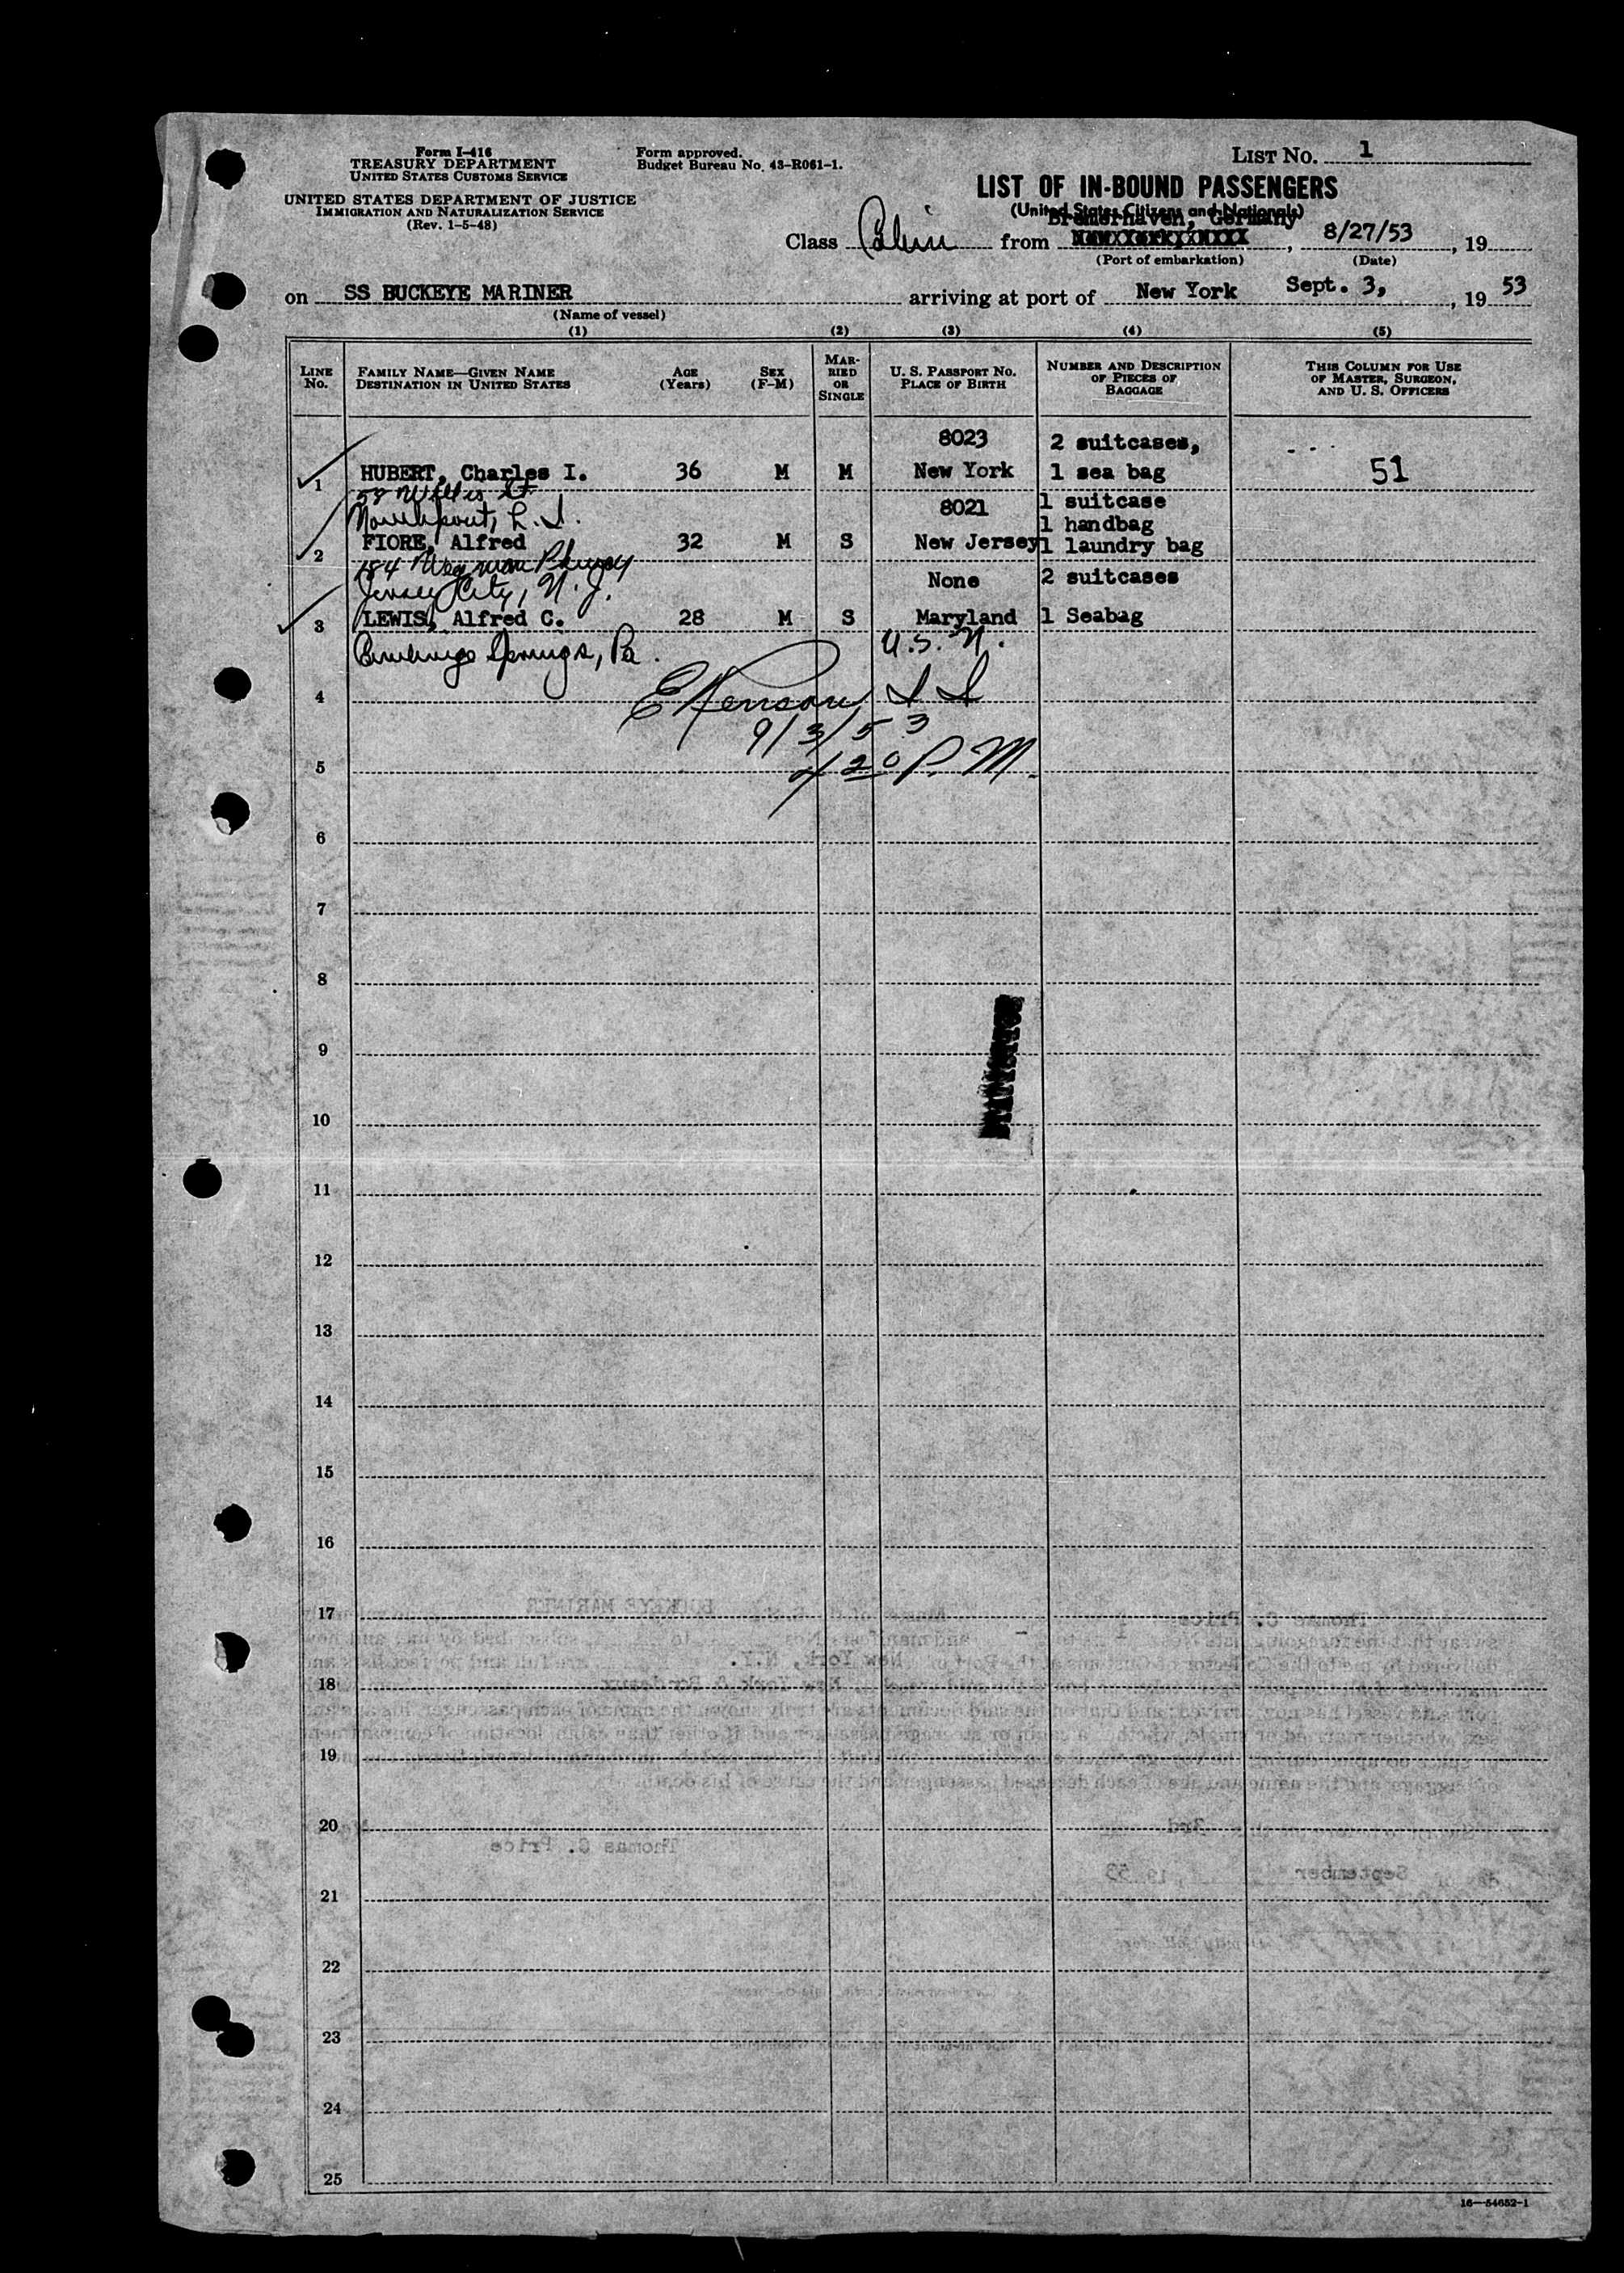 Form I-416
TREASURY DEPARTMENT
UNITED STATES CUSTOMS SERVICE
UNITED STATES DEPARTMENT OF JUSTICE
IMMIGRATION AND NATURALIZATION SERVICE
(Rev. 1-5-48)
Form approved.
Budget Bureau No. 43-R061-1.
LIST NO. 1
LIST OF IN-BOUND PASSENGERS
(United States Citizens and Nationals)
Bremerhaven, Germany
Class Cabin from , 8/27/53, 19
(Port of embarkation) (Date)
on SS BUCKEYE MARINER arriving at port of New York Sept. 3, , 19 53
(Name of vessel)
(1) (2) (3) (4) (5)
LINE NO.
FAMILY NAME—GIVEN NAME
DESTINATION IN UNITED STATES
AGE
(Years)
SEX
(F-M)
MARRIED OR SINGLE
U. S. PASSPORT NO.
PLACE OF BIRTH
NUMBER AND DESCRIPTION
OF PIECES OF
BAGGAGE
THIS COLUMN FOR USE
OF MASTER, SURGEON,
AND U. S. OFFICERS
8023 2 suitcases,
1 HUBERT, Charles I. 36 M M New York 1 sea bag 51
58 Willis St
Northport, L. I.
8021 1 suitcase
1 handbag
2 FIORE, Alfred 32 M S New Jersey 1 laundry bag
184 Pkway
Jersey City, N. J.
None 2 suitcases
3 LEWIS, Alfred C. 28 M S Maryland 1 Seabag
Springs, Pa. U.S.N.
4
9/3/53
4 20 P. M.
5
6
7
8
9
10
11
12
13
14
15
16
17
18
19
20
21
22
23
24
25
16—54652-1